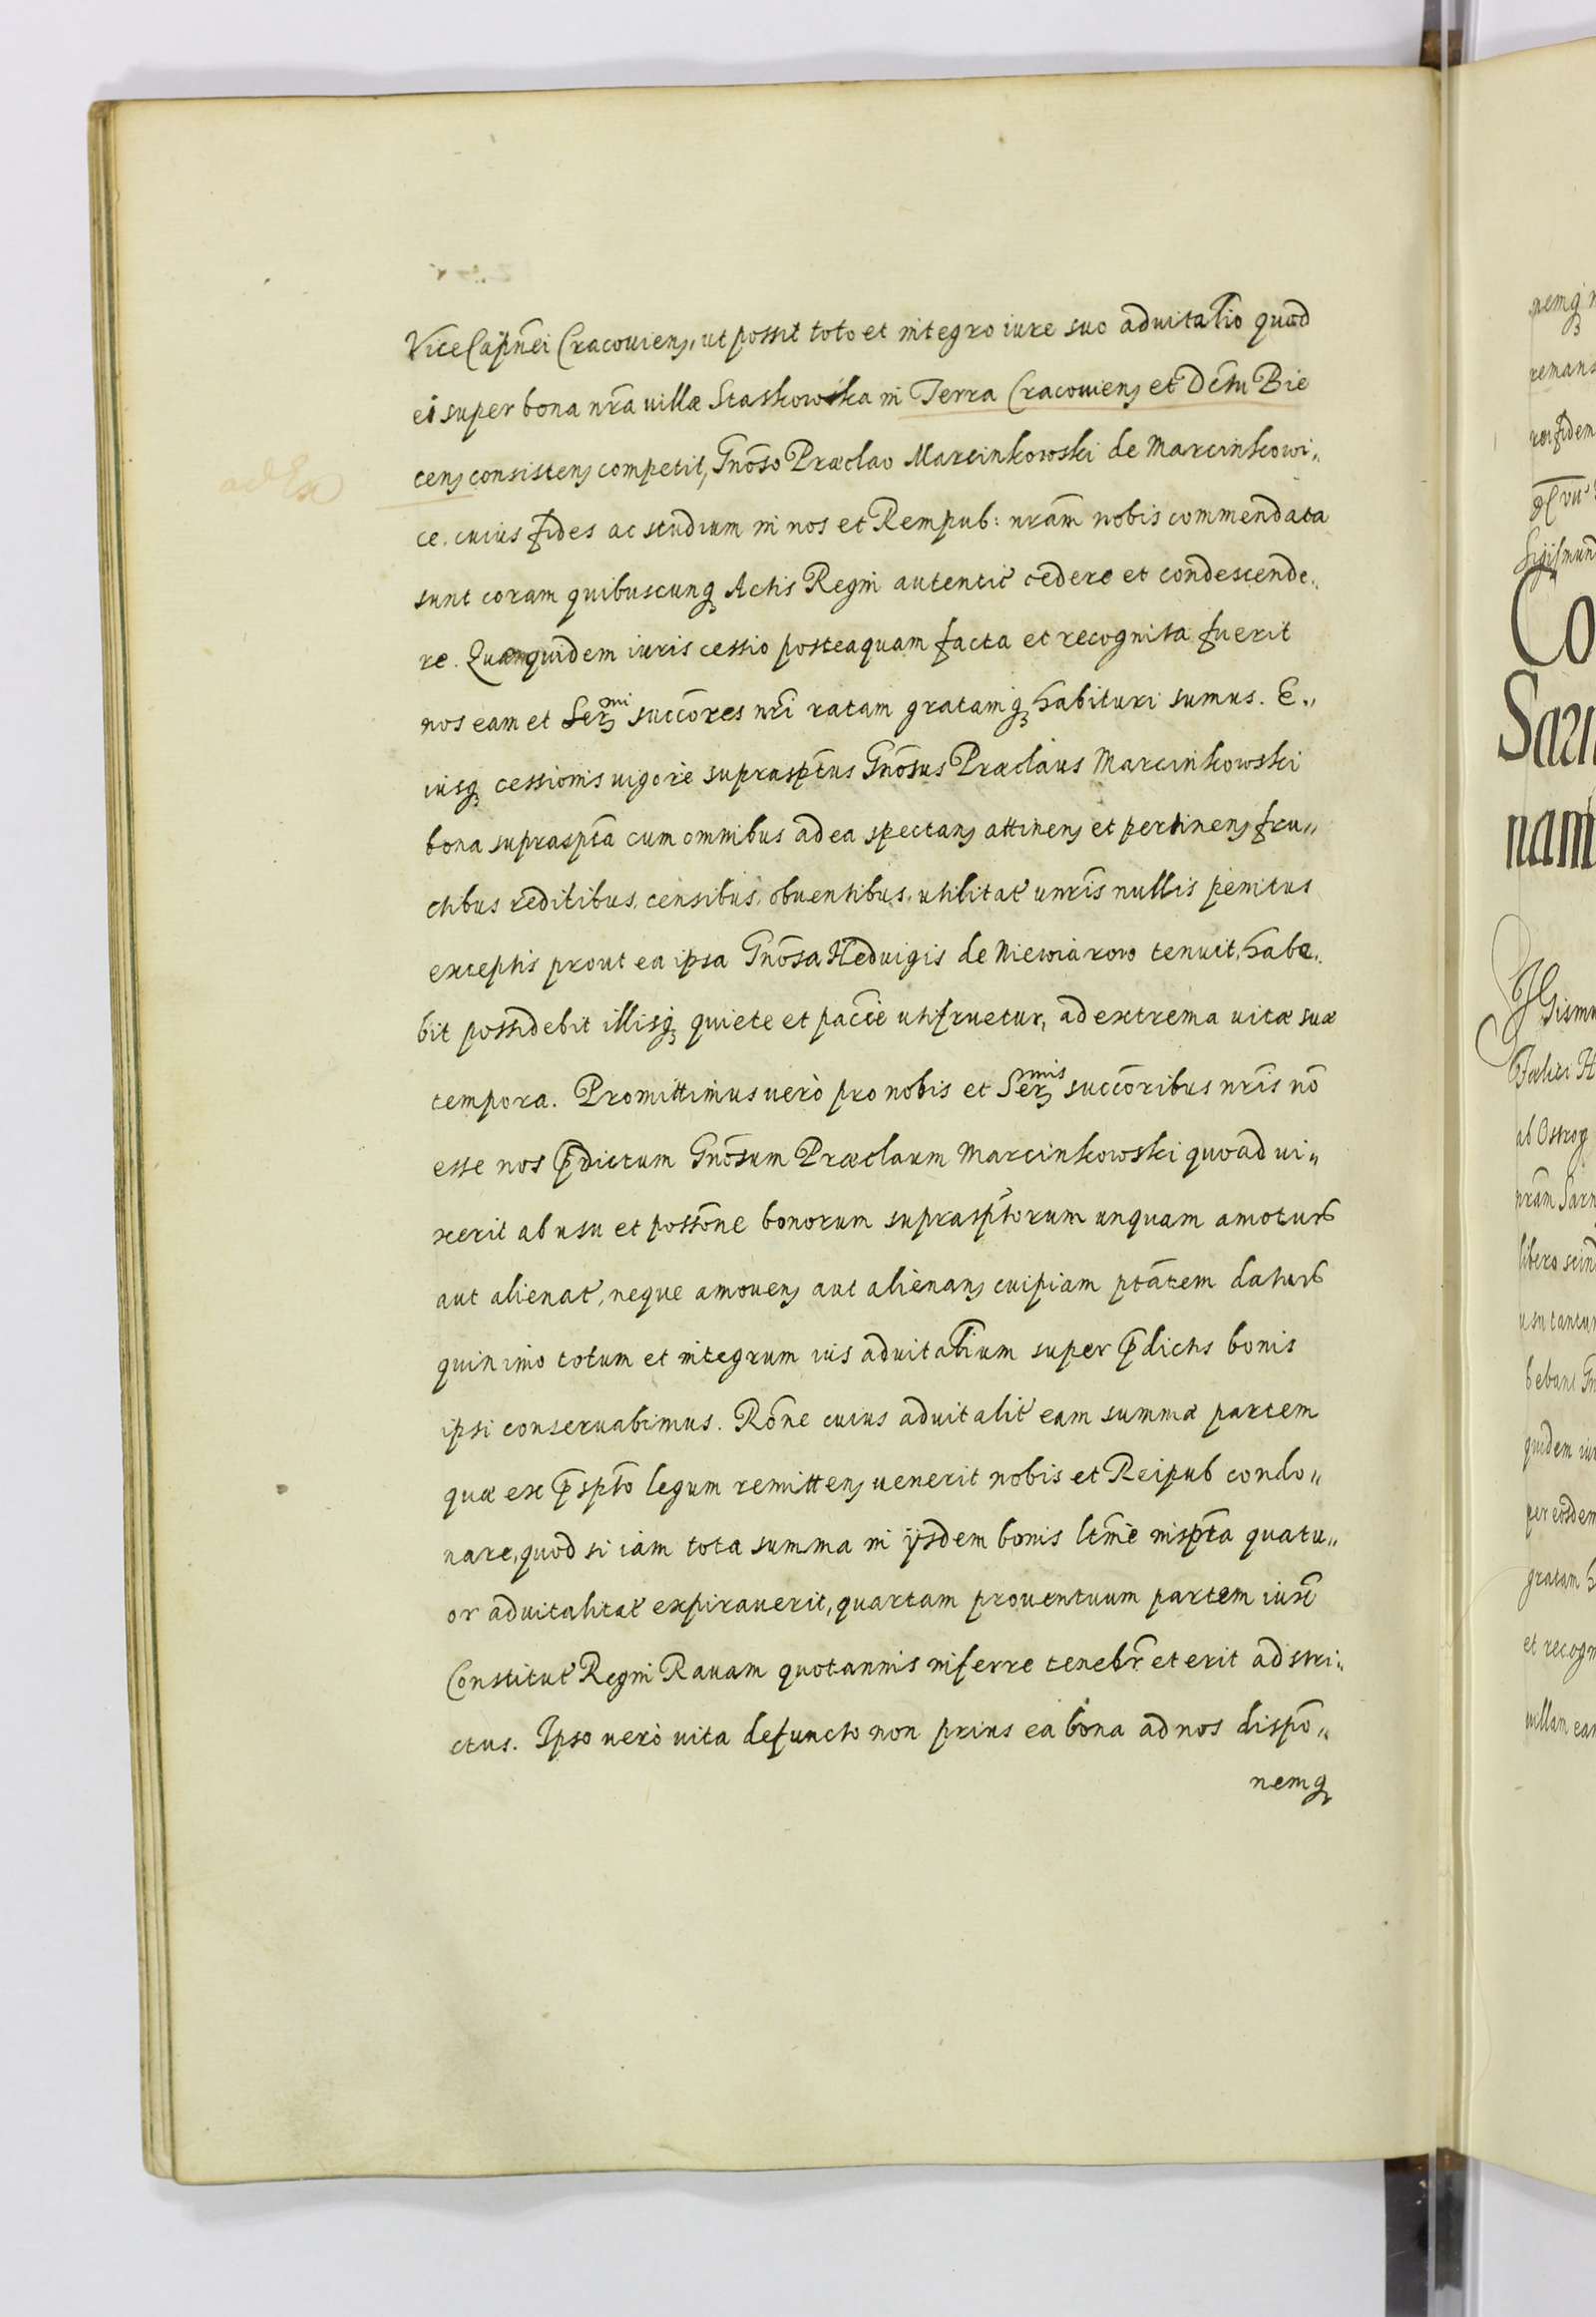 Vice Capnei Cracouiens, ut possit toto et integro iure suo aduitalio quod
ei super bona nra uillæ Staskowska in Terra Cracouiens et Dctu Bie
cens consistens competit, Gnoso Præclao Marcinkowski de Marcinkowi„
ce. cuius fides ac studium in nos et Rempub: nram nobis commendata
sunt coram quibuscunq Actis Regni autentic cedere et condescende„
re. Quæquidem iuris cessio posteaquam facta et recognita fuerit
nos eam et Sermi succores nri ratam gratamq habituri sumus. E„
iusq cessionis uigore suprasptus Gnosus Præclaus Marcinkowski
bona supraspta cum omnibus ad ea spectans attinens et pertinens fru„
ctibus reditibus, censibus, obuentibus, utilitat unris nullis penitus
exceptis prout ea ipsa Gnosa Heduigis de Niewiarow tenuit, habe„
bit possidebit illisq quiete et pacie utifruetur, ad extrema uitæ suæ
tempora. Promittimus uerò pro nobis et Sermis succoribus nris nō
esse nos pdictum Gnosum Præclaum Marcinkowski quoad ui„
xerit ab usu et possone bonorum suprasptorum unquam amoturos
aut alienat, neque amouens aut alienans cuipiam ptatem daturos
quinimo totum et integrum ius aduitalium super pdictis bonis
ipsi conseruabimus. Rone cuius aduitalit eam summæ partem
quæ ex pspto legum remittens uenerit nobis et Reipub condo„
nare, quod si iam tota summa in ijsdem bonis ltmie inspta quatu„
or aduitalitat expirauerit, quartam prouentuum partem iuxt
Constitut Regni Rauam quotannis inferre tenebr et erit adstri„
ctus. Ipso uerò uita defuncto non prius ea bona ad nos dispo„
nemq